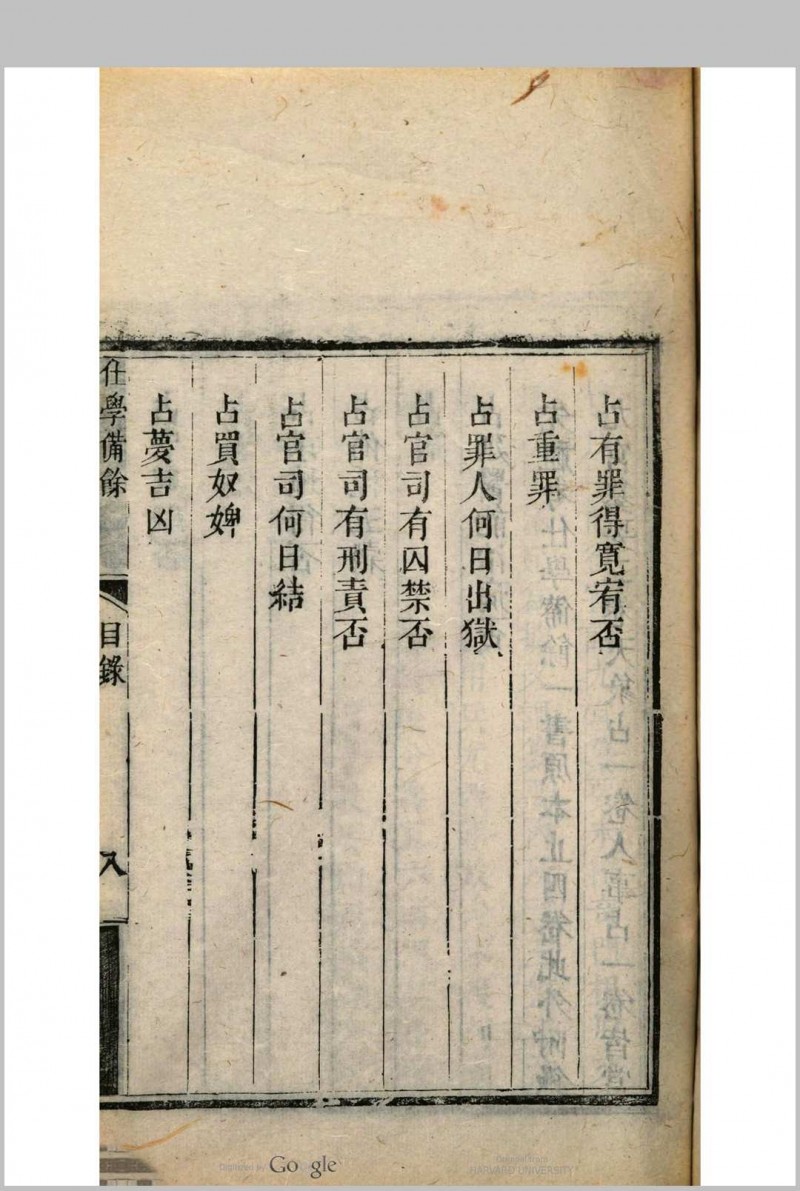 占有罪得寬宥否
占重罪
占罪人何日出獄
占官司有囚禁否
占官司有刑責否
占官司何日結
占買奴婢
占夢吉凶
仕學備餘
目錄
八
Digitized by Google
Original from
HARVARD UNIVERSITY